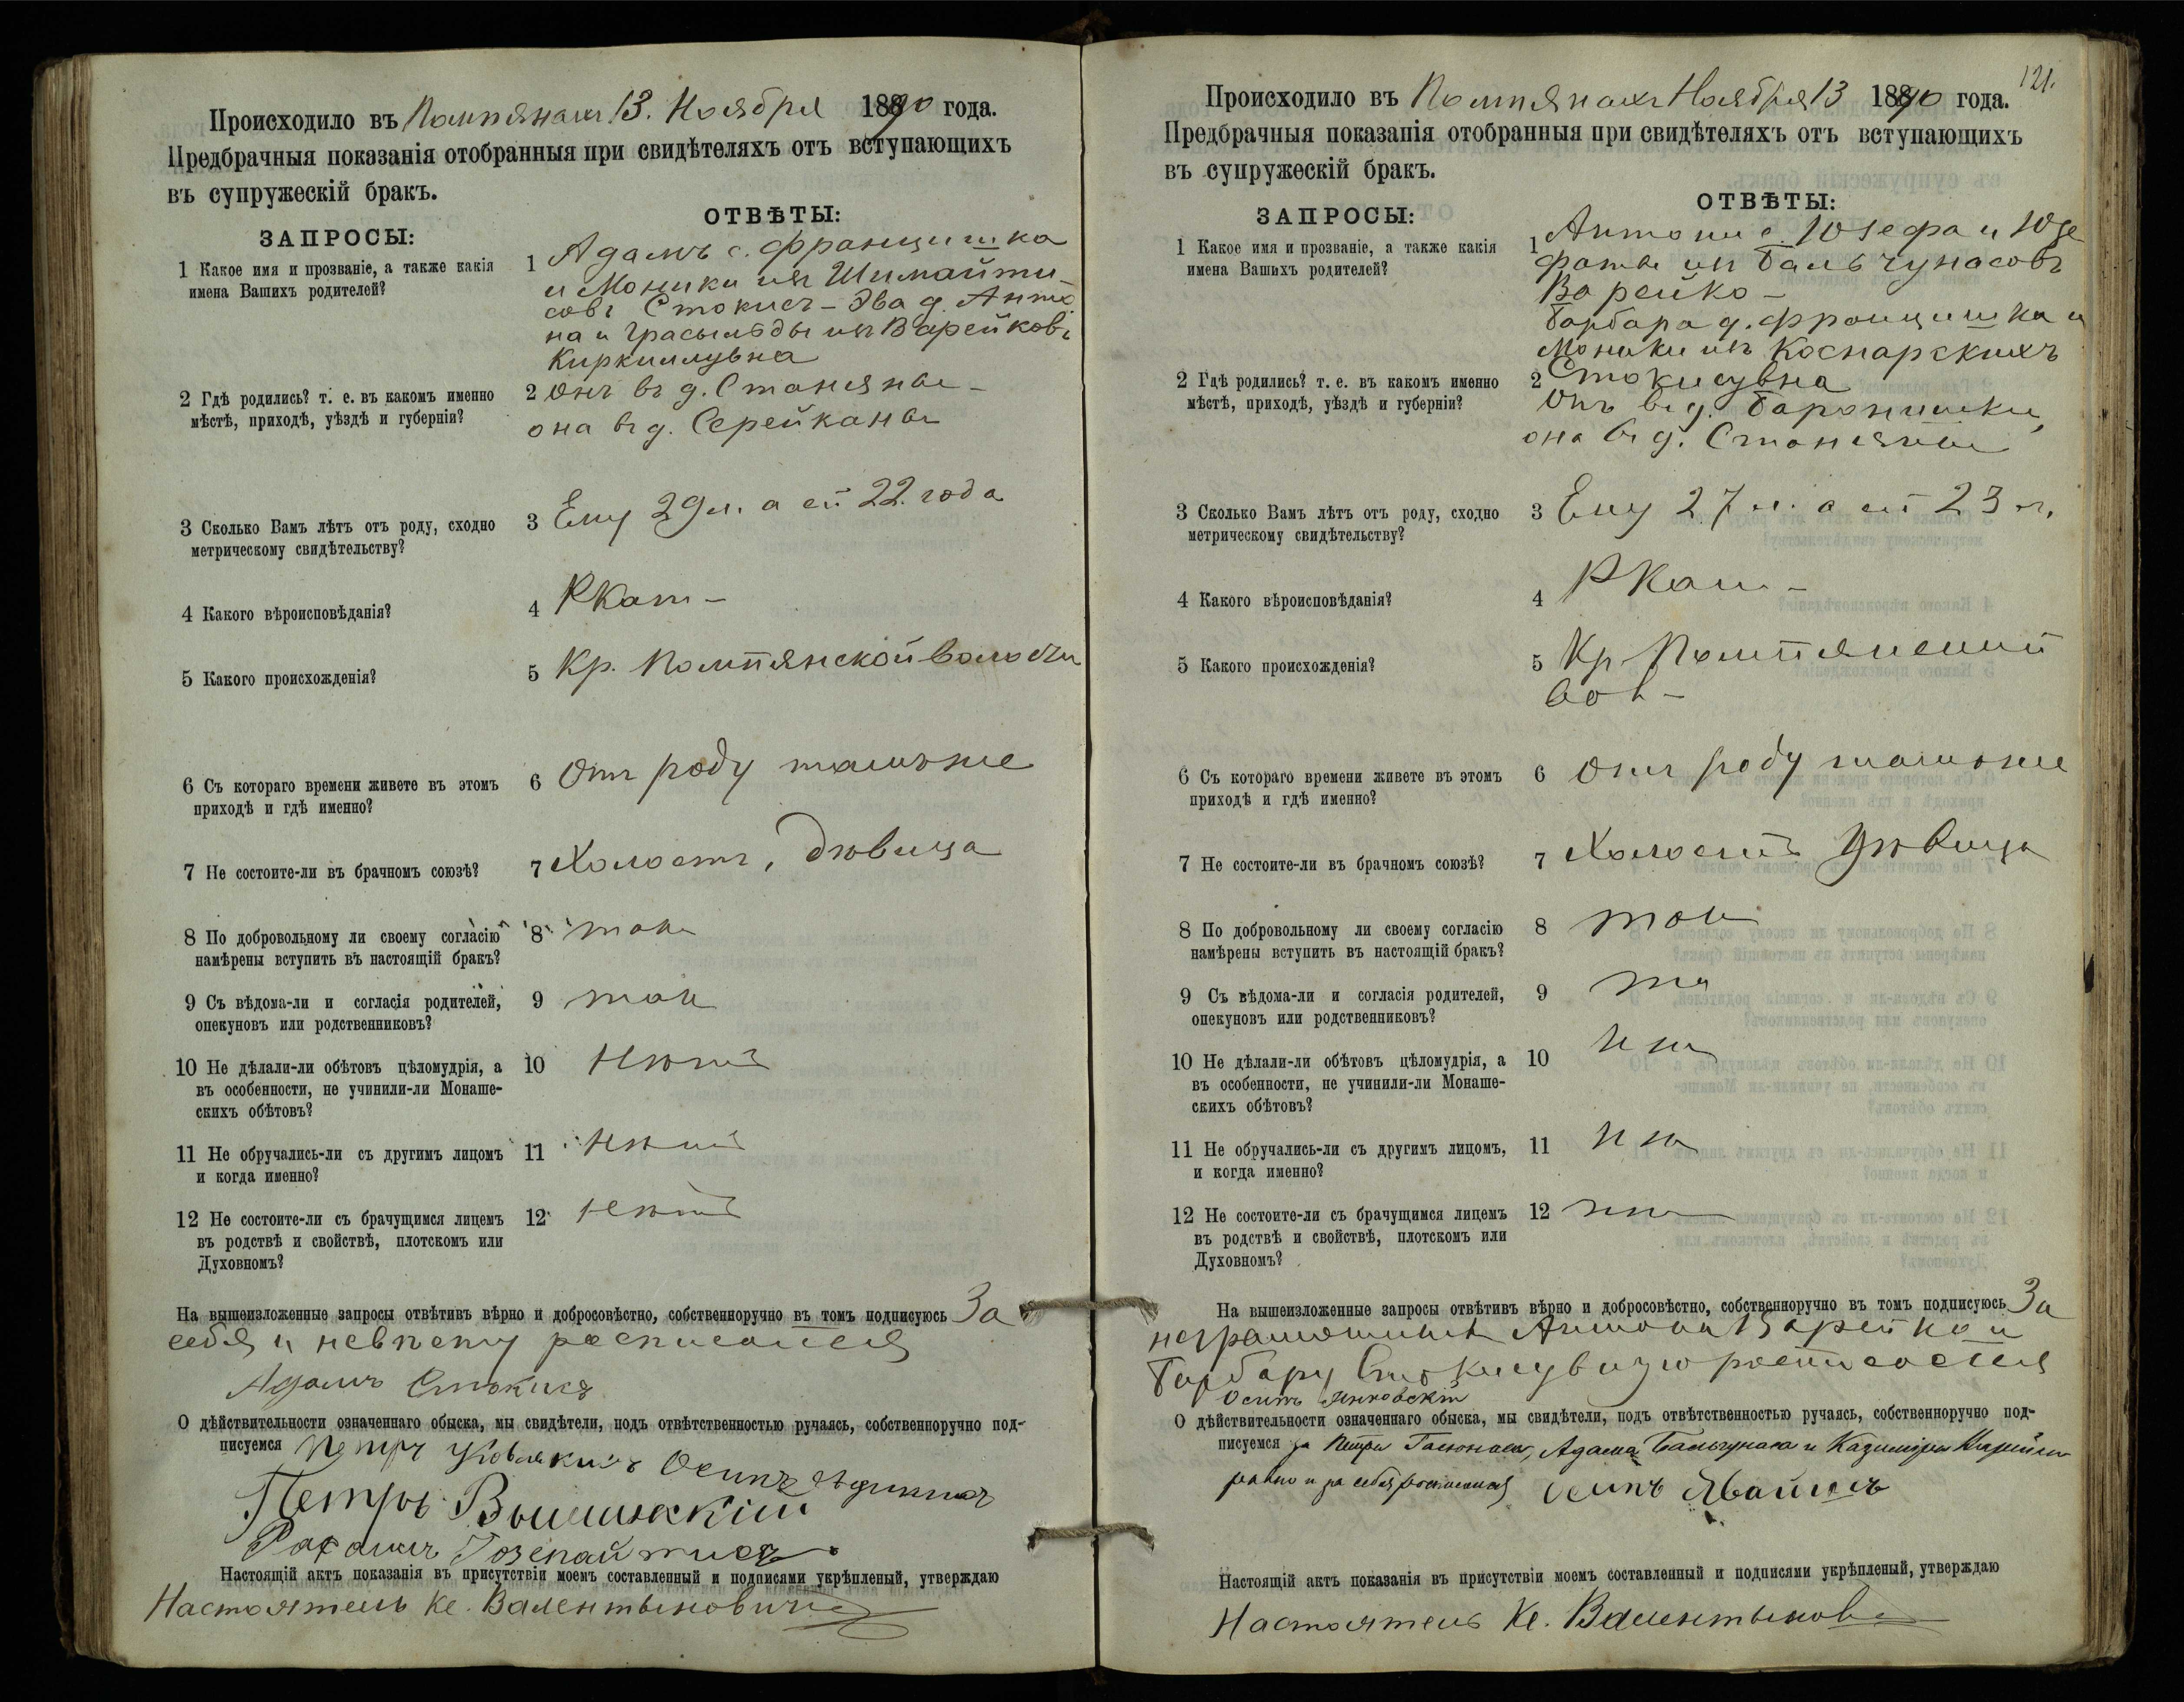 Происходило въ Помпянахъ 13. Ноября 1890 года.
Предбрачныя показанія отобранныя при свидѣтеляхъ отъ вступающихъ
въ супружескій бракъ.
ЗАПРОСЫ:
ОТВѢТЫ:
1 Какое имя и прозваніе, а также какія
имена Вашихъ родителей?
1 Адамъ с. Францишка
и Моники изъ Шимайти
совъ Стокисъ - Эва д. Анто
на и Грасыльды изъ Варейковъ
Киркиллувна
2 Гдѣ родились? т. е. въ какомъ именно
мѣстѣ, приходѣ, уѣздѣ и губерніи?
2 Онъ въ д. Станяны -
она въ д. Серейканы
3 Сколько Вамъ лѣтъ отъ роду, сходно
метрическому свидѣтельству?
3 Ему 29 л. а ей 22. года
4 Какого вѣроисповѣданія?
4 РКат -
5 Какого происхожденія?
5 Кр. Помпянской волости
6 Съ котораго времени живете въ этомъ
приходѣ и гдѣ именно?
6 Отъ роду тамъже
7 Не состоите-ли въ брачномъ союзѣ?
7 Холостъ, дѣвица
8 По добровольному ли своему согласію
намѣрены вступить въ настоящій бракъ?
8 такъ
9 Съ вѣдома-ли и согласія родителей,
опекуновъ или родственниковъ?
9 такъ
10 Не дѣлали-ли обѣтовъ цѣломудрія, а
въ особенности, не учинили-ли Монаше-
скихъ обѣтовъ?
10 Нѣтъ
11 Не обручались-ли съ другимъ лицомъ
и когда именно?
11 Нѣтъ
12 Не состоите-ли съ брачущимся лицемъ
въ родствѣ и свойствѣ, плотскомъ или
Духовномъ?
12 Нѣтъ
На вышеизложенные запросы отвѣтивъ вѣрно и добросовѣстно, собственноручно въ томъ подписуюсь За
себя и невѣсту росписался
Адамъ Стокисъ
О дѣйствительности означеннаго обыска, мы свидѣтели, подъ отвѣтственностью ручаясь, собственноручно под-
писуемся Петръ Осипъ
Петръ
Настоящій актъ показанія въ присутствіи моемъ составленный и подписями укрѣпленый, утверждаю
Настоятель Кс. Валентыновичъ
121.
Происходило въ Помпянахъ Ноября 13 1890 года.
Предбрачныя показанія отобранныя при свидѣтеляхъ отъ вступающихъ
въ супружескій бракъ.
ЗАПРОСЫ:
ОТВѢТЫ:
1 Какое имя и прозваніе, а также какія
имена Вашихъ родителей?
1 Антони с. Юзефа и Юзе
фаты изъ Бальчунасовъ
Варейко -
Барбара д. Францишка и
Моники изъ Коснарскихъ
Стокисувна
2 Гдѣ родились? т. е. въ какомъ именно
мѣстѣ, приходѣ, уѣздѣ и губерніи?
2 Онъ въ д. Баронишки,
она въ д. Станяны
3 Сколько Вамъ лѣтъ отъ роду, сходно
метрическому свидѣтельству?
3 Ему 27 л. а ей 23 г.
4 Какого вѣроисповѣданія?
4 РКат -
5 Какого происхожденія?
5 Кр Помпянской
вол -
6 Съ котораго времени живете въ этомъ
приходѣ и гдѣ именно?
6 Отъ роду тамъже
7 Не состоите-ли въ брачномъ союзѣ?
7 Холостъ дѣвица
8 По добровольному ли своему согласію
намѣрены вступить въ настоящій бракъ?
8 так
9 Съ вѣдома-ли и согласія родителей,
опекуновъ или родственниковъ?
9 та
10 Не дѣлали-ли обѣтовъ цѣломудрія, а
въ особенности, не учинили-ли Монаше-
скихъ обѣтовъ?
10 нѣт
11 Не обручались-ли съ другимъ лицомъ,
и когда именно?
11 нѣт
12 Не состоите-ли съ брачущимся лицемъ
въ родствѣ и свойствѣ, плотскомъ или
Духовномъ?
12 нѣт
На вышеизложенные запросы отвѣтивъ вѣрно и добросовѣстно, собственноручно въ томъ подписуюсь За
неграмотныхъ Антона Варейко и
Барбару Стокисувную росписался
Осипъ Янковскій
О дѣйствительности означеннаго обыска, мы свидѣтели, подъ отвѣтственностью ручаясь, собственноручно под-
писуемся за Петра Адама Бальчунаса и Казимира
равно и за себя росписался Осипъ
Настоящій актъ показанія въ присутствіи моемъ составленный и подписями укрѣпленый, утверждаю
Настоятель Кс. Валентынов